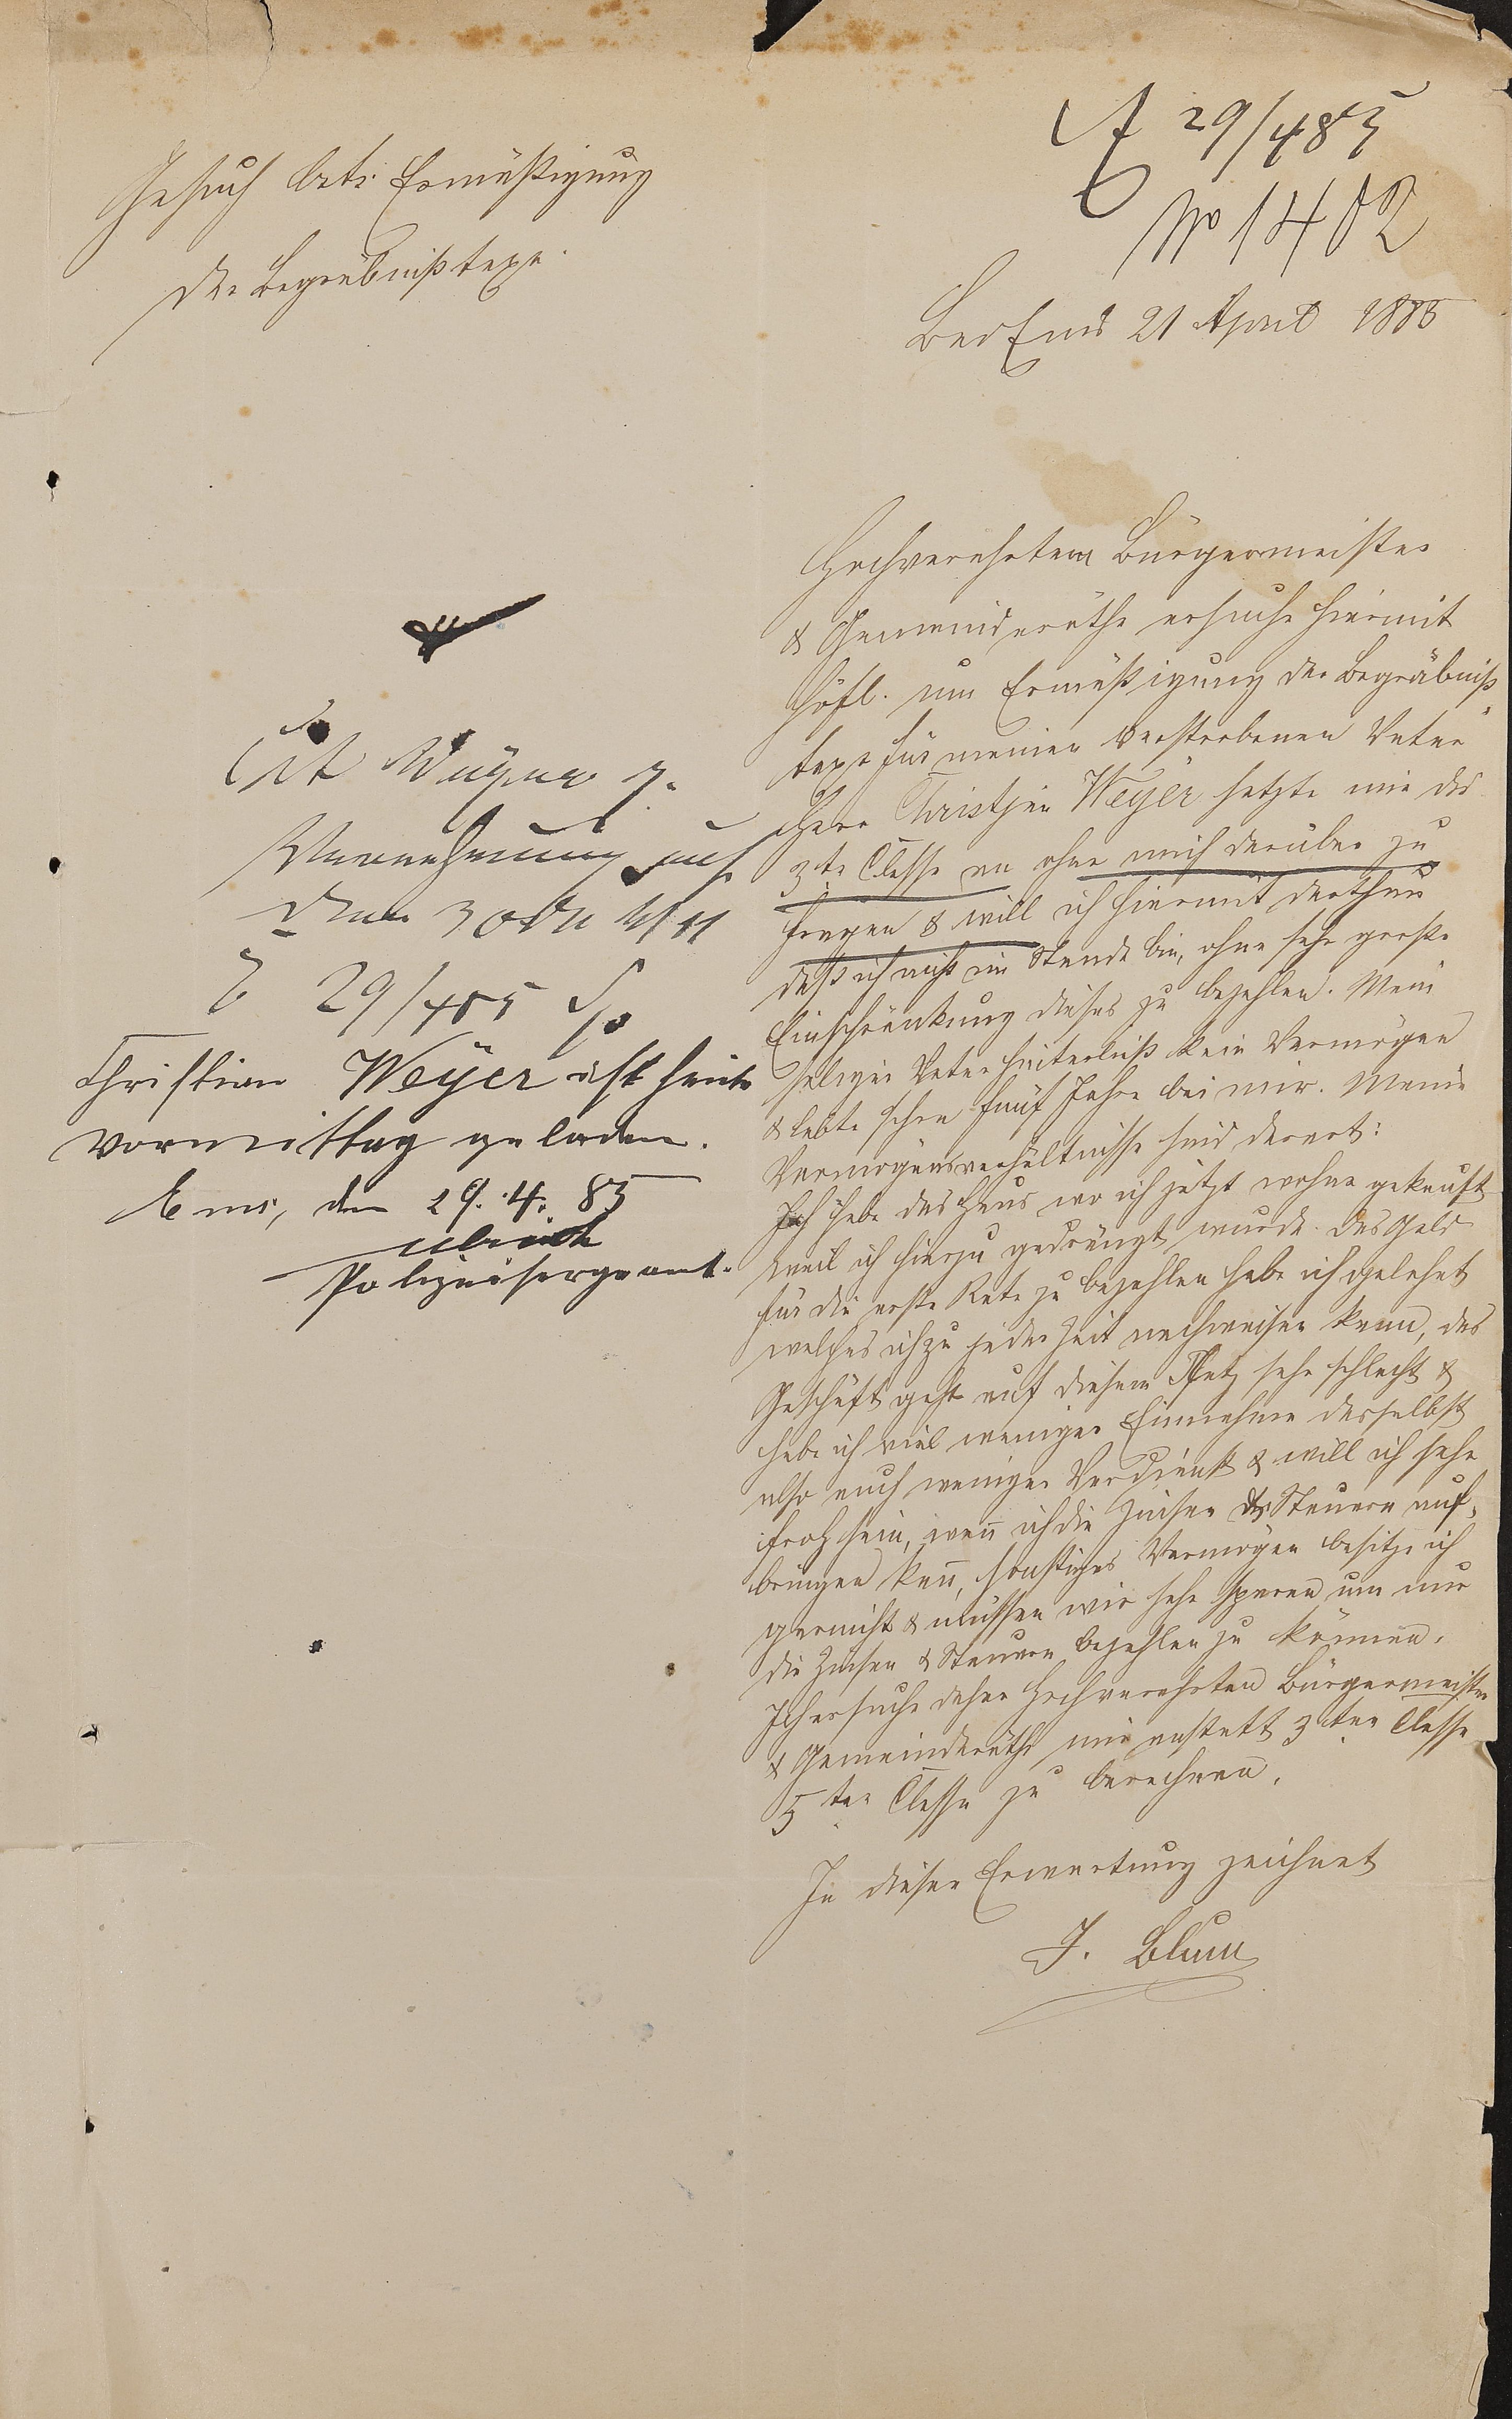 Gesuch betr. Ermäßigung
der Begräbnißtaxe.
29/4 85
No 1402
Bad Ems 21 April 1885
Hochverehrten Bürgermeister
& Gemeinderäthe ersuche hiermit
höfl. um Ermäßigung der Begräbniß
taxe für meinen verstorbenen Vater
Herr Christjan Weyer setzte mir die
3te Classe an ohne mich darüber zu
fragen & will ich hiermit darthun
daß ich nicht im Stande bin, ohne sehr große
Einschränkung dieses zu bezahlen. Mein
seliger Vater hinterließ kein Vermögen
& lebte schon fünf Jahre bei mir. Meine
Vermögensverhältnisse sind derart:
Ich habe das Haus wo ich jetzt wohne gekauft
weil ich hierzu gedrängt wurde. Das Geld
für die erste Rate zu bezahlen habe ich gelehnt
welches ich zu jeder Zeit nachweisen kann, das
Geschäft geht auf diesem Platz sehr schlecht &
habe ich viel weniger Einnahme daselbst
also auch weniger Verdienst & will ich sehr
froh sein, wen̄ ich die Zinsen & Steuern auf-
bringen kan̄, sonstiges Vermögen besitze ich
garnicht & müssen wir sehr sparen um nur
die Zinsen & Steuern bezahlen zu können.
Ich ersuche daher Hochverehrten Bürgermeister
& Gemeinderäthe mir anstatt 3ter Classe
5ter Classe zu berechnen.
In dieser Erwartung zeichnet
J. Blum
Cit Weyer z.
Vernehmung auf
den 30ten
E 29/4 85
Christian Weyer ist heute
vormittag geladen.
Ems, den 29. 4. 85
Ulrich
Polizeisergeant.